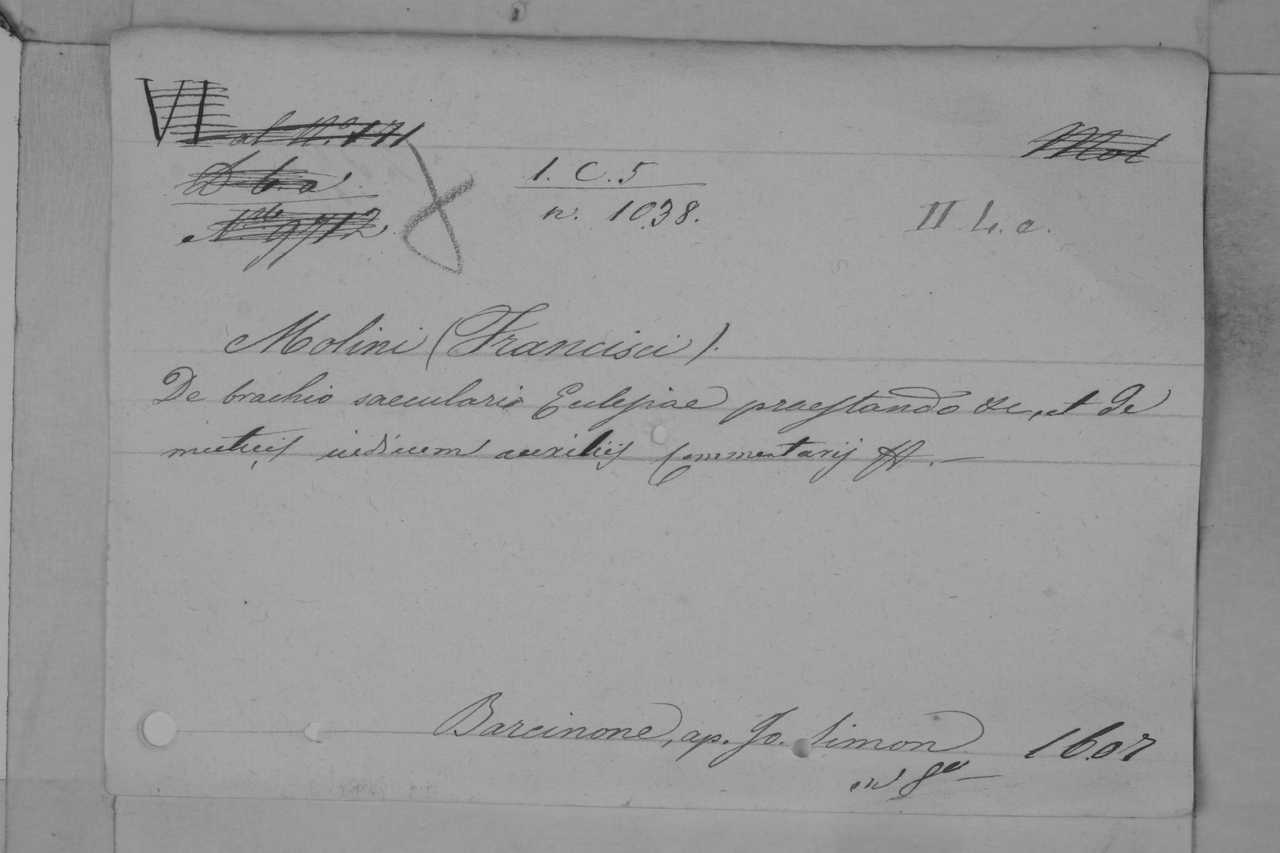 VI al N.º 171
Mol
D b a
1. C. 5
Nº 9712
n. 1038.
II. 4. c.
Molini (Francisci).
De brachio saeculario Eclesiae praestando &c, et de
mutuis iudicum auxiliis Commentarij
Barcinone, ap. Jo. Simon 1607
in 8º